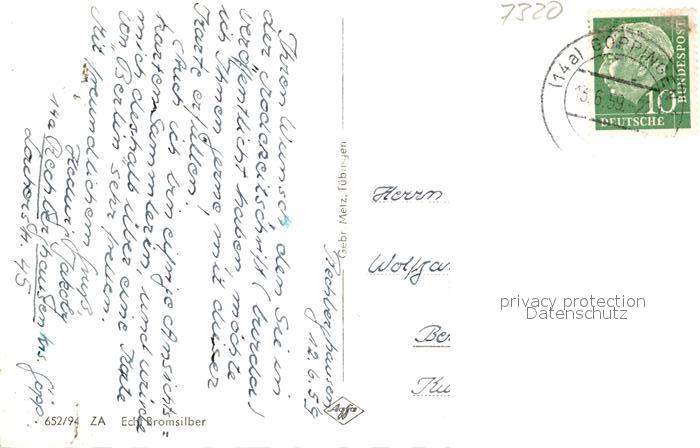 7320
(14a) GÖPPINGEN
13.6.59.
10
DEUTSCHE
BUNDESPOST
Rechberghausen
12.6.59
Ihrem Wunsch, den Sie in
der Modezeitschrift (burda)
veröffentlicht haben, möchte
ich Ihnen gerne mit dieser
Karte erfüllen.
Auch ich bin eifrige Ansichts=
kartensammlerin, und würde
mich deshalb über eine Karte
von Berlin sehr freuen.
Mit freundlichem Gruß,
Hedwig Jakob
14a Rechberghausen Krs. Göpp.
45
Gebr. Metz, Tübingen
Herrn
Wolfga
Be
Ku
privacy protection
Datenschutz
652/94 ZA Echt Bromsilber
Agfa